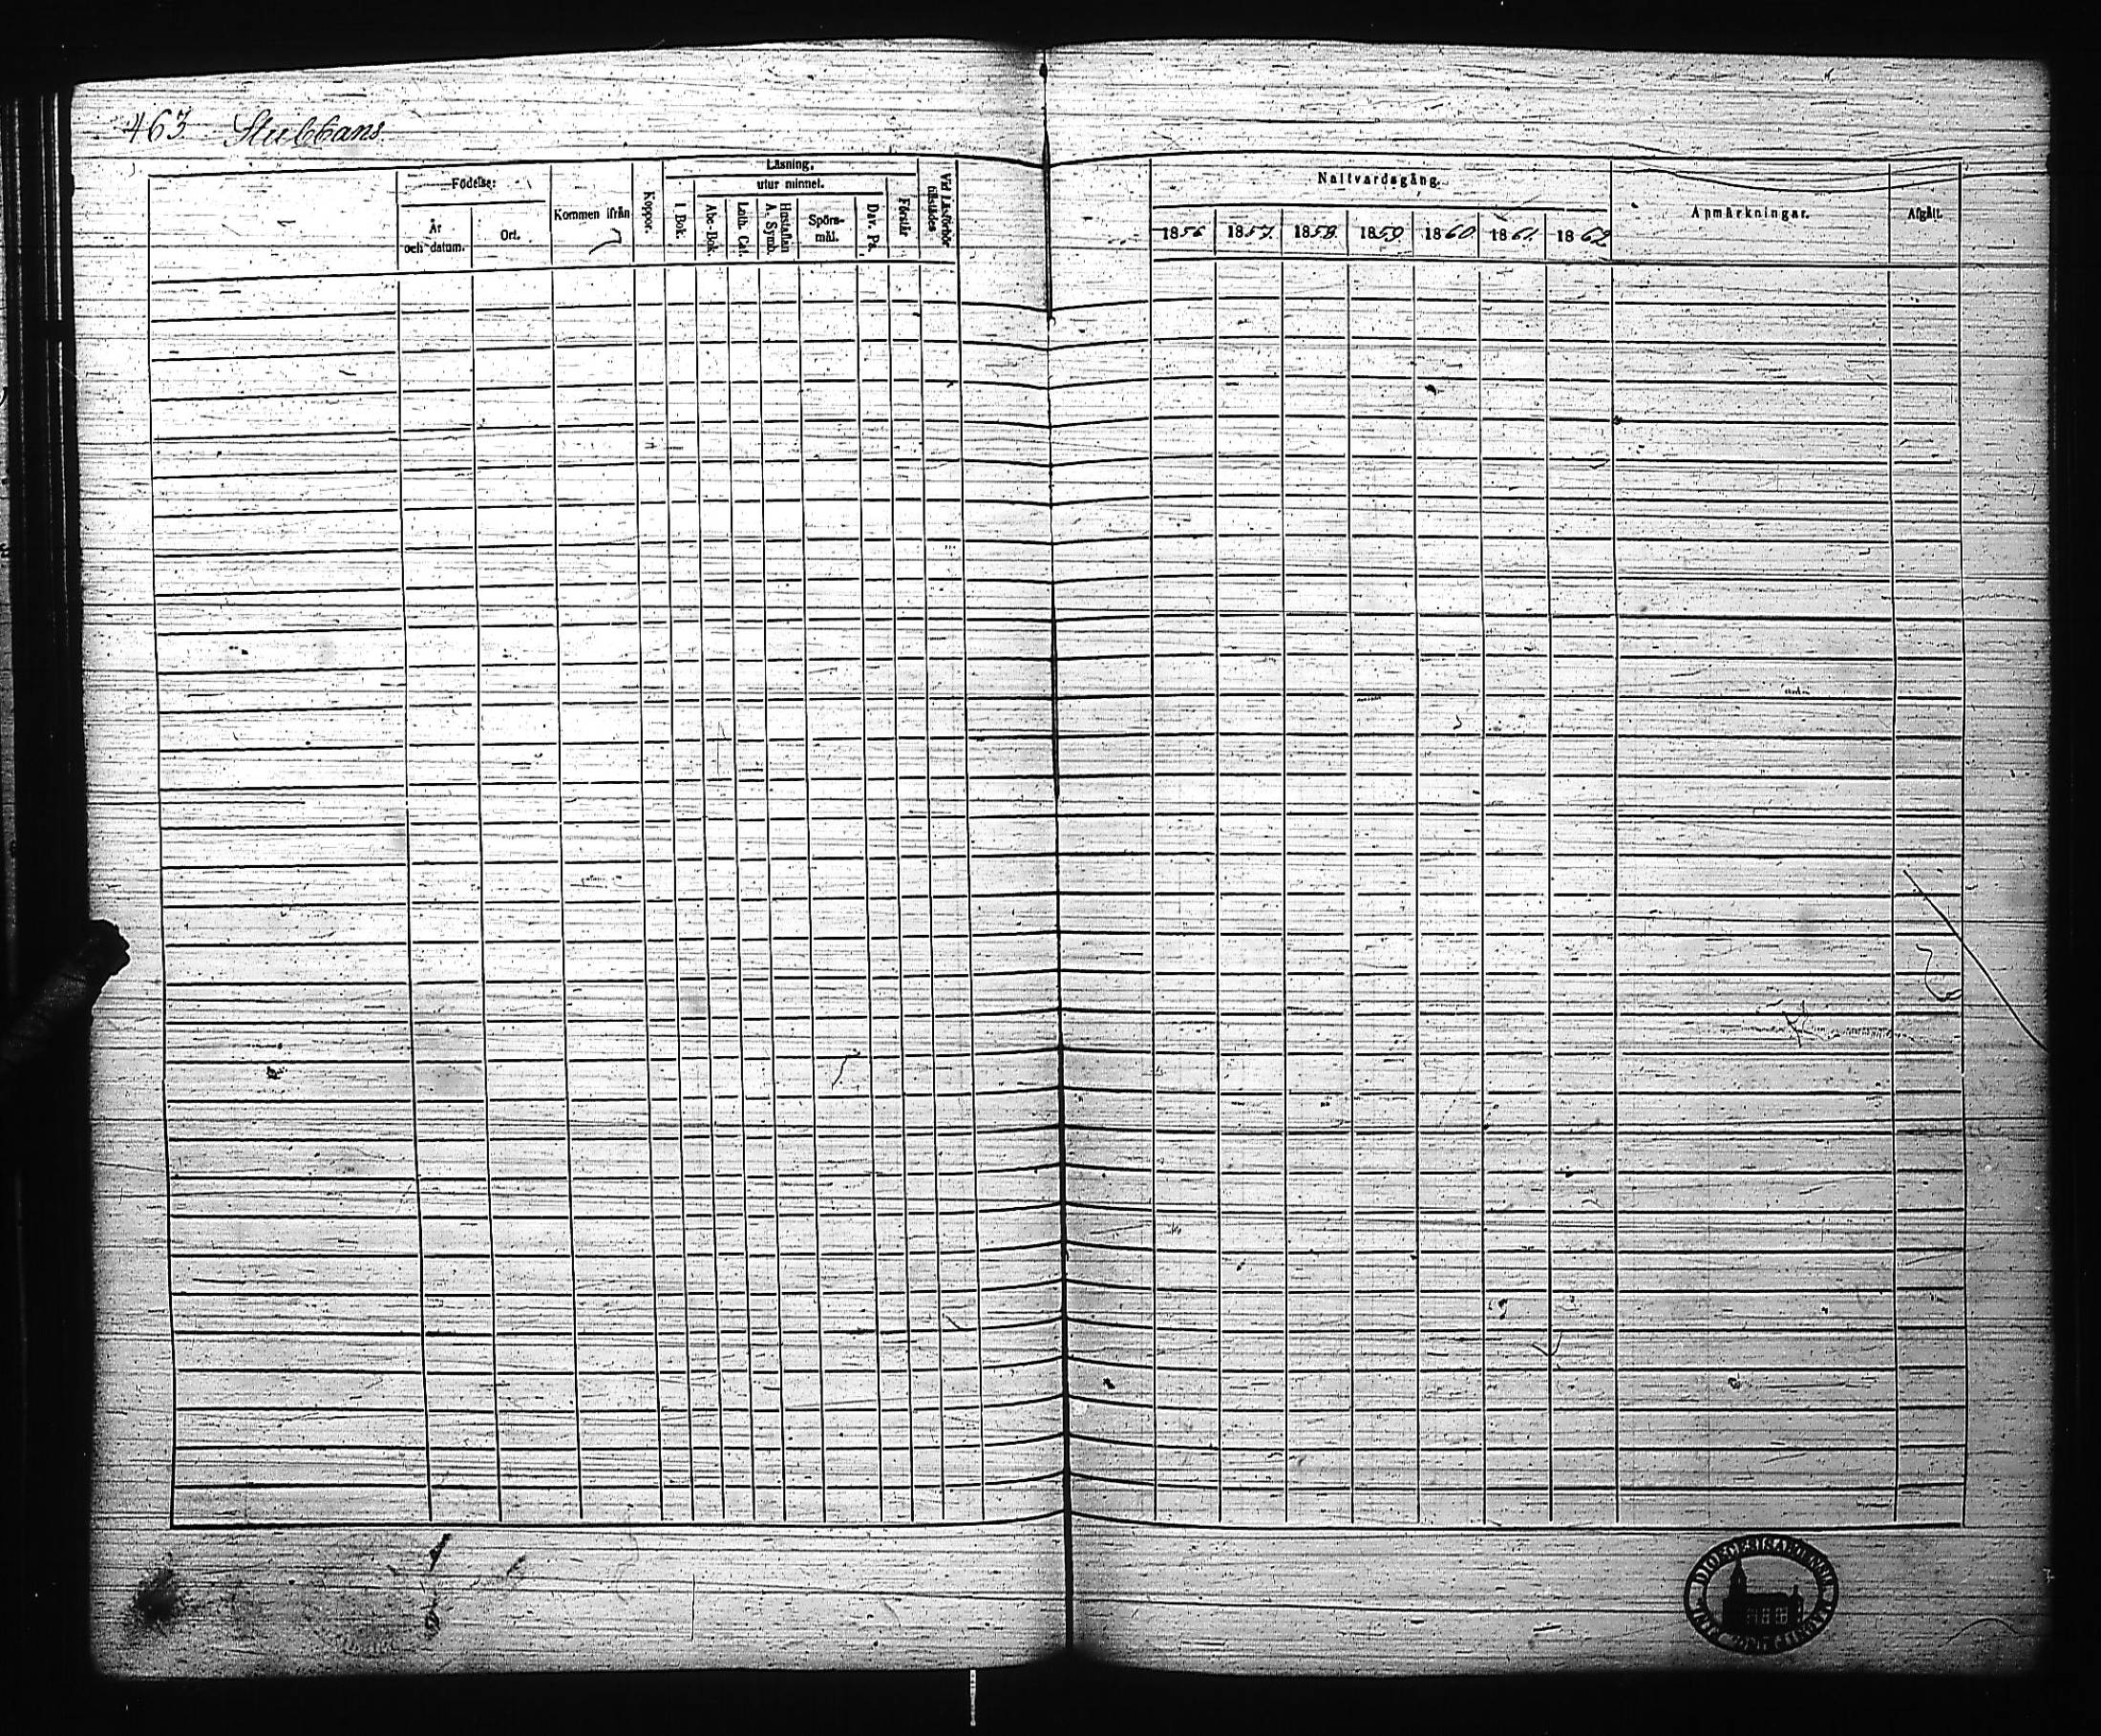 463 Stubbans
Födelse:
År och datum.
Ort.
Kommen ifrån
Koppor.
Läsning,
utur minnet.
I Bok.
Abc-Bok.
Luth. Cat.
Hustaflan A. Symb.
Spörsmål.
Dav. Ps.
Förstår
Vid Läsförhör tillstädes
Nattvardsgång.
1856 1857. 1858. 1859 1860. 1861. 1862
Anmärkningar.
Afgått.